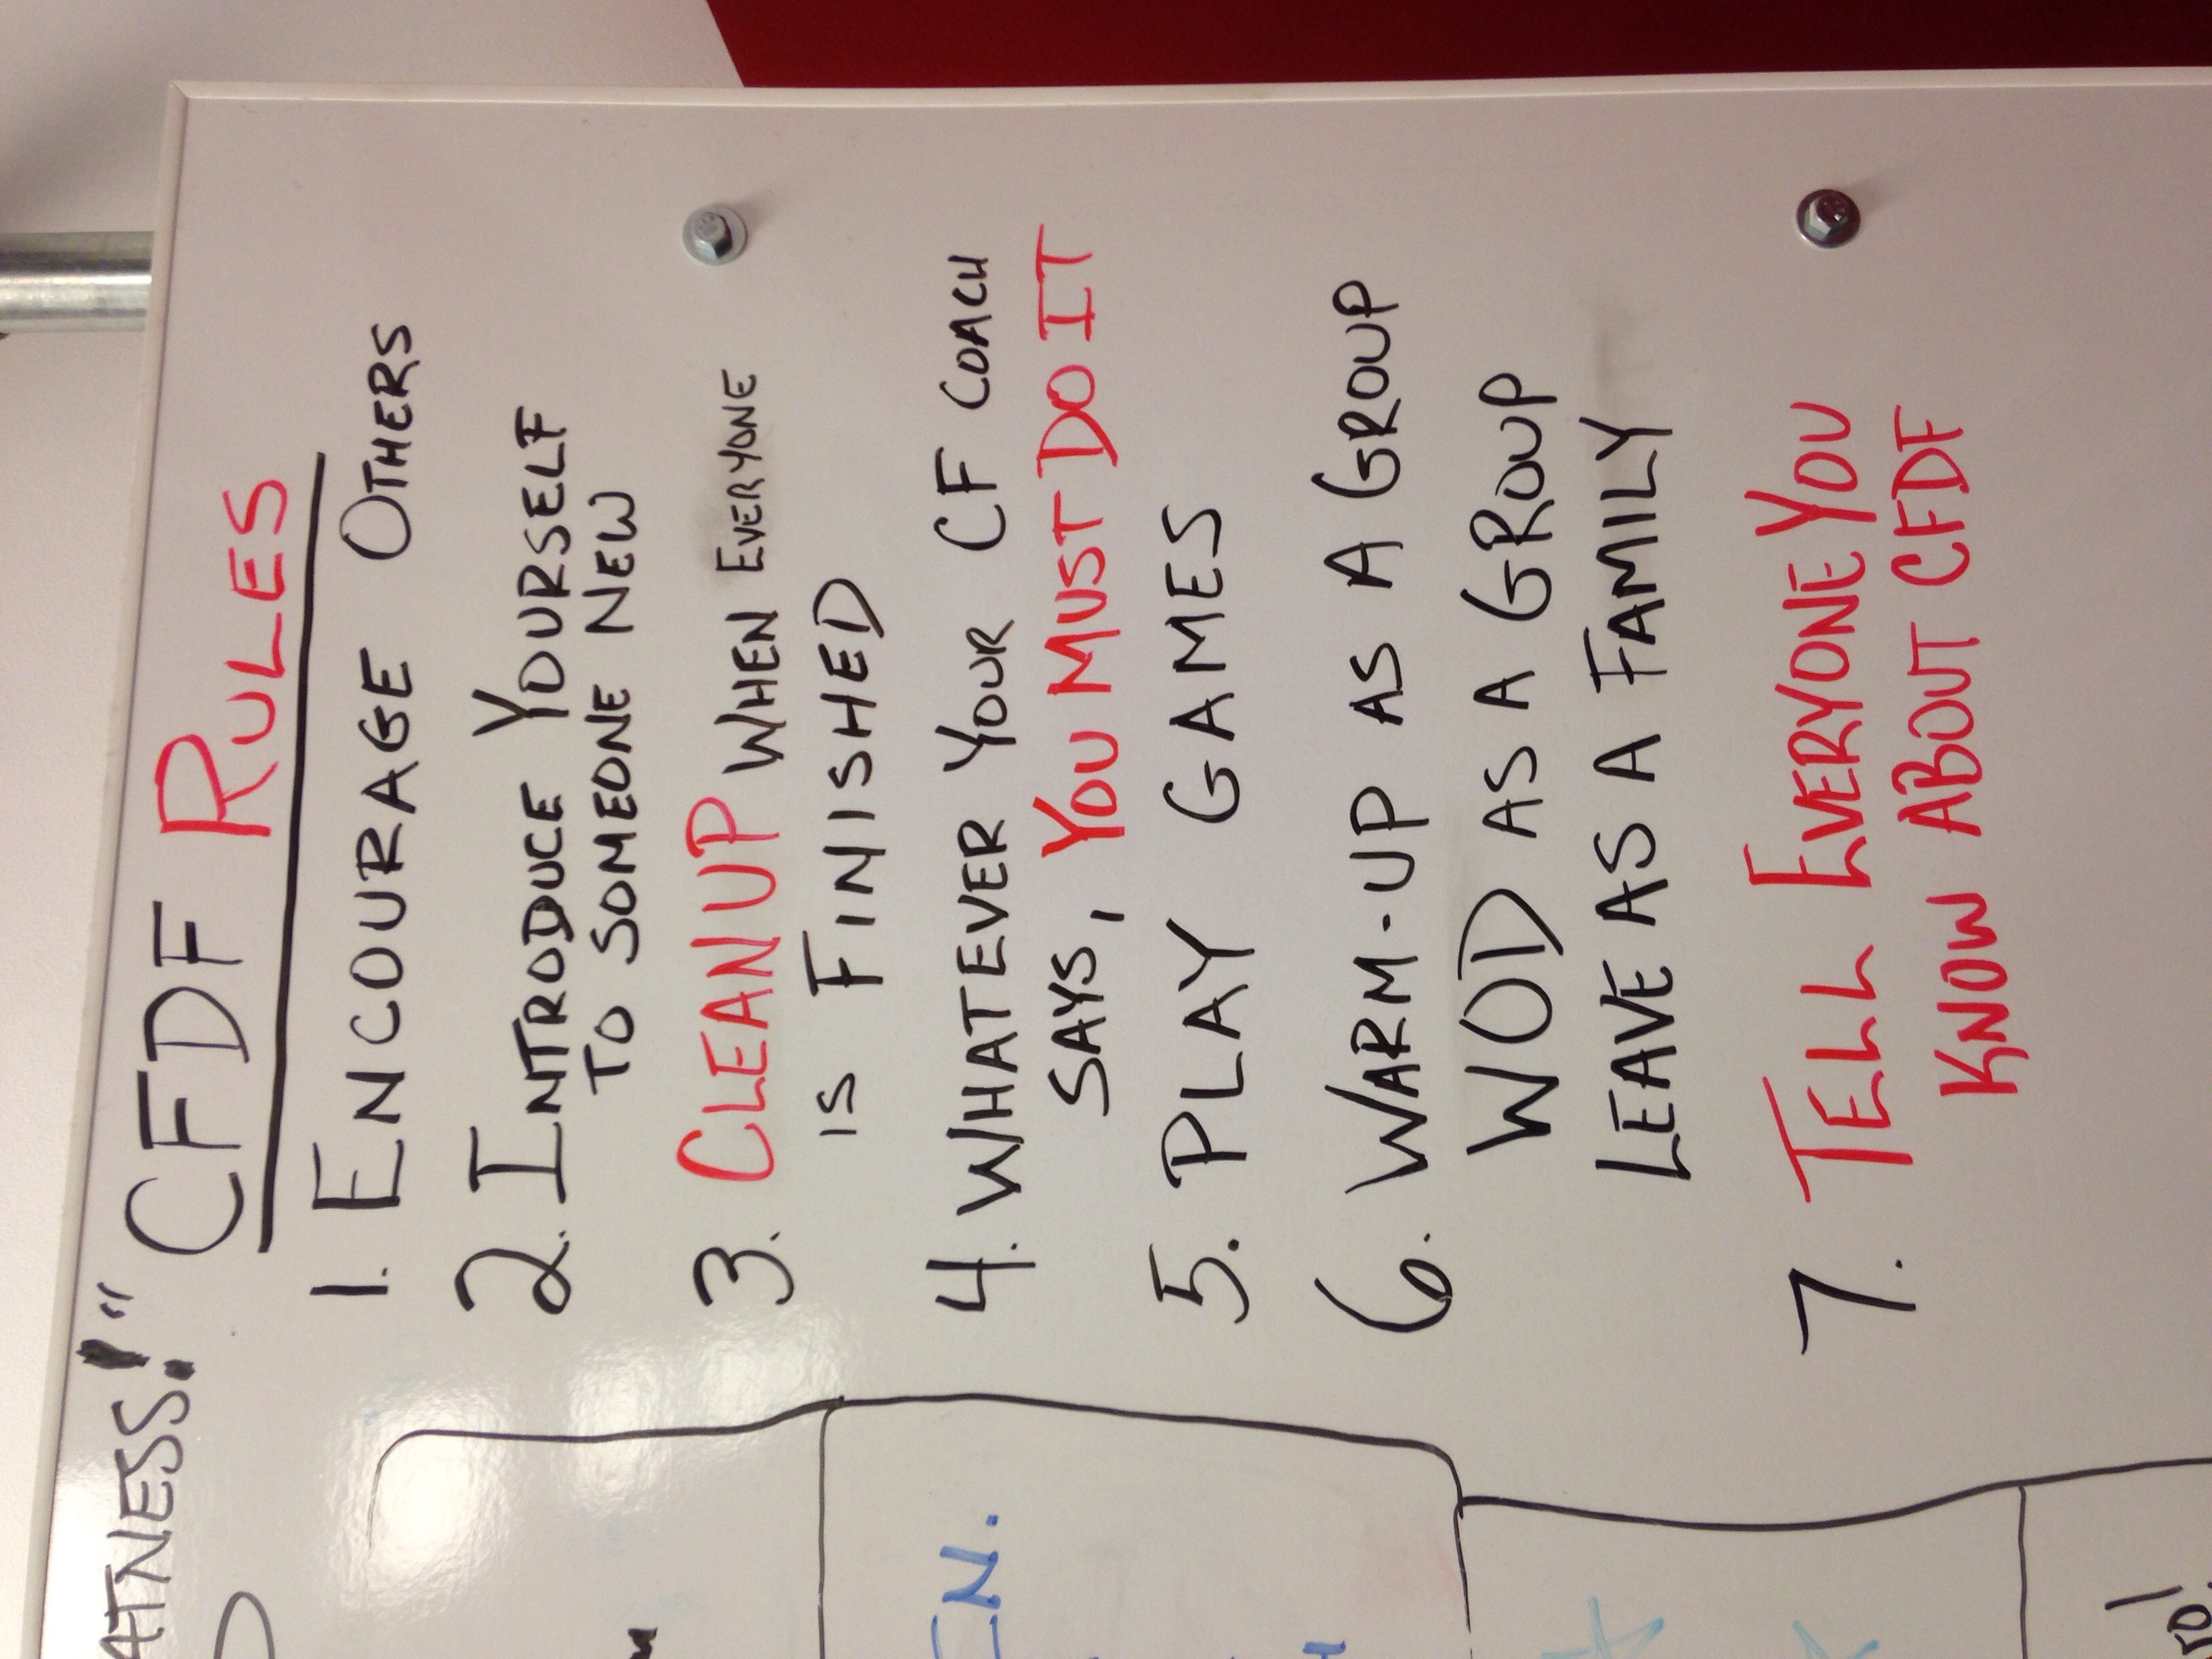 CFDF RULES
1. ENCOURAGE OTHERS
2. INTRODUCE YOURSELF
TO SOMEONE NEW
3. CLEANUP WHEN EVERYONE
IS FINISHED
4. WHATEVER YOUR CF COACH
SAYS, YOU MUST DO IT
5. PLAY GAMES
6. WARM-UP AS A GROUP
WOD AS A GROUP
LEAVE AS A FAMILY
7. TELL EVERYONE YOU
KNOW ABOUT CFDF